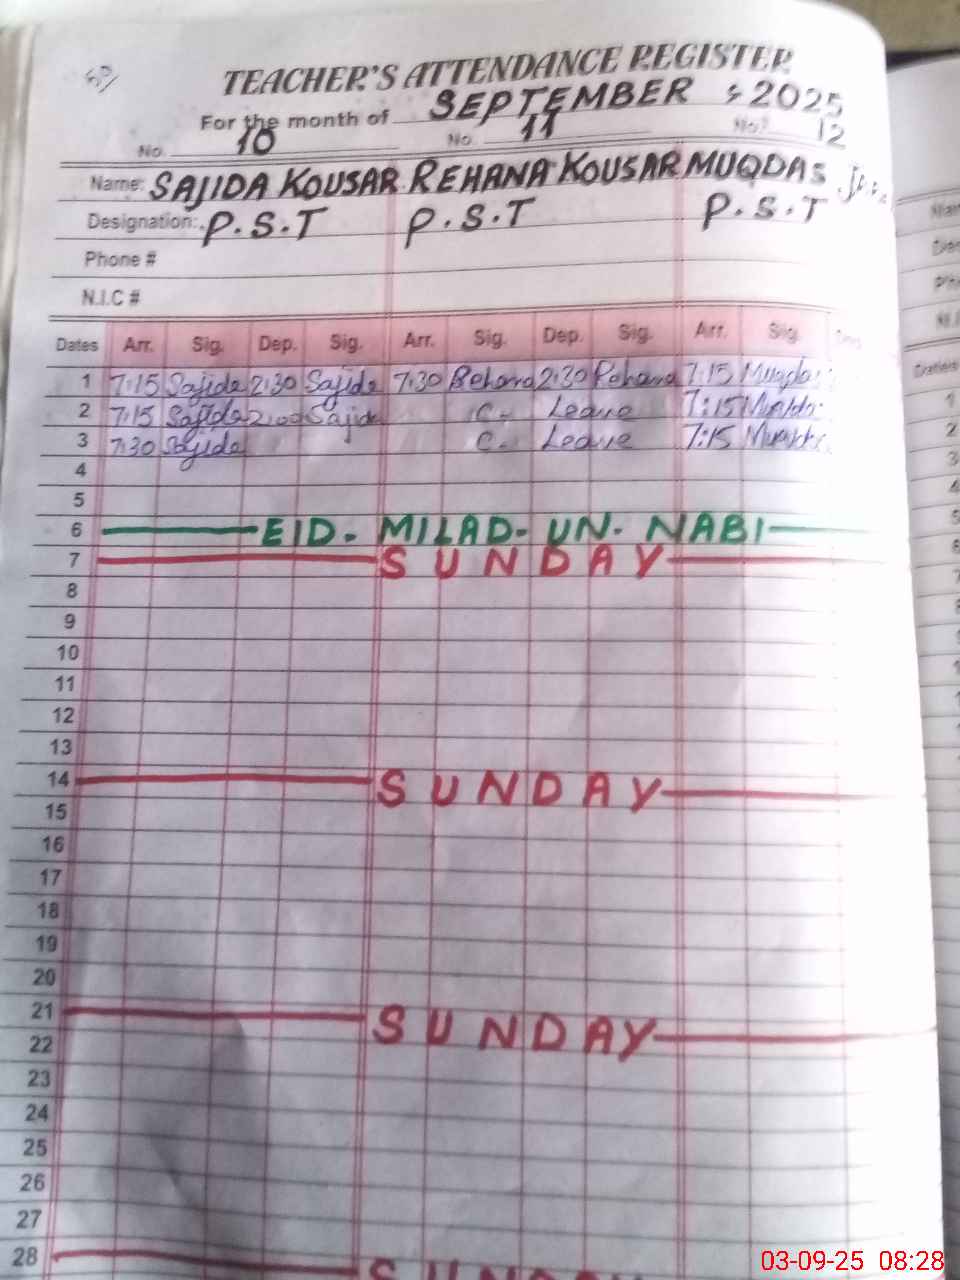 TEACHER'S ATTENDANCE REGISTER
For the month of SEPTEMBER 2025
No. 10 No. 11 No. 12
Name: SAJIDA KOUSAR REHANA KOUSAR MUQDAS
Designation: P.S.T P.S.T P.S.T
Phone #
N.I.C #
Dates Arr. Sig. Dep. Sig. Arr. Sig. Dep. Sig. Arr. Sig. Dep.
1 7:15 Sajida 2:30 Sajida 7:30 Rehana 2:30 Rehana 7:15
2 7:15 Sajida 2:00 Sajida C- Leave 7:15
3 7:30 Sajida C- Leave 7:15
4
5
6 EID- MILAD- UN- NABI
7 SUNDAY
8
9
10
11
12
13
14 SUNDAY
15
16
17
18
19
20
21 SUNDAY
22
23
24
25
26
27
28 SUNDAY
03-09-25 08:28